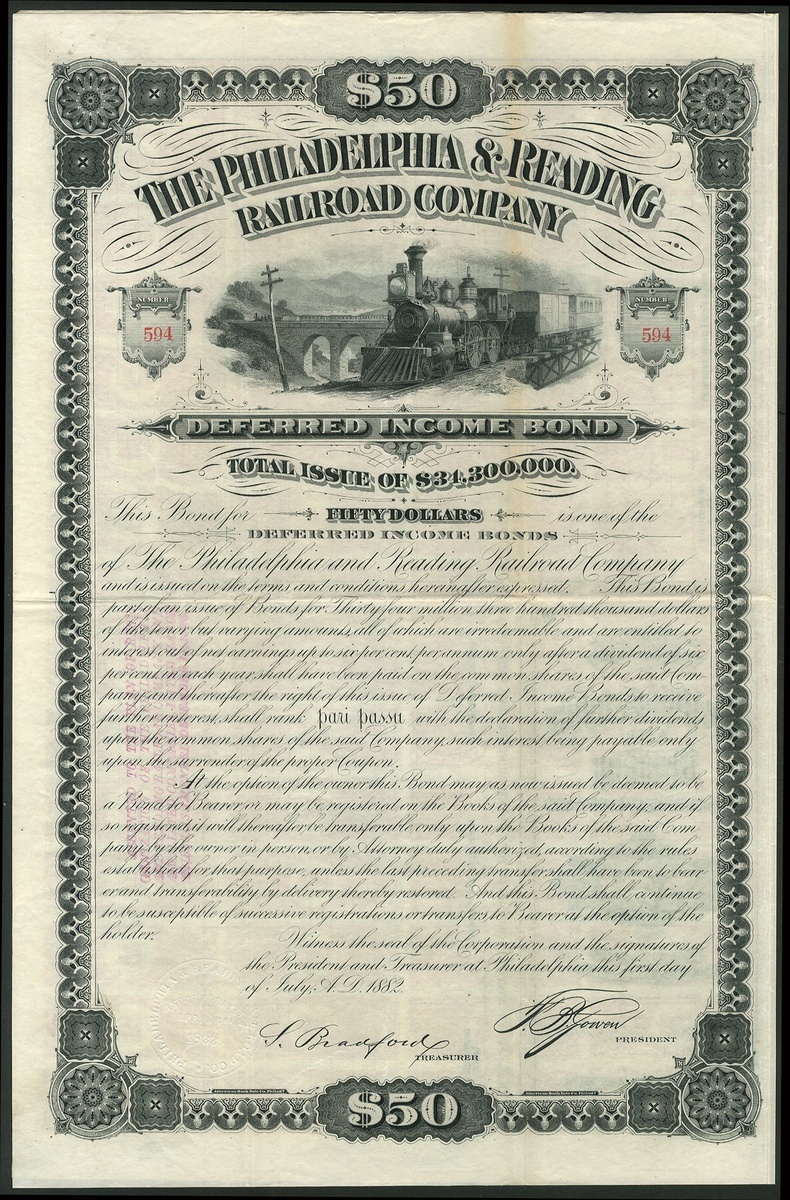 $50
THE PHILADELPHIA & READING
RAILROAD COMPANY
NUMBER
594
NUMBER
594
DEFERRED INCOME BOND
TOTAL ISSUE OF $34,300,000.
This Bond for FIFTY DOLLARS is one of the
DEFERRED INCOME BONDS
of The Philadelphia and Reading Railroad Company
and is issued on the terms and conditions hereinafter expressed. This Bond is
part of an issue of Bonds for Thirty four million three hundred thousand dollars
of like tenor but varying amounts, all of which are irredeemable and are entitled to
interest out of net earnings up to six per cent. per annum only after a dividend of six
per cent. in such year shall have been paid on the common shares of the said Com-
pany and thereafter the right of this issue of Deferred Income Bonds to receive
further interest, shall rank pari passu with the declaration of further dividends
upon the common shares of the said Company, such interest being payable only
upon the surrender of the proper Coupon.
At the option of the owner this Bond may as now issued be deemed to be
a Bond to Bearer or may be registered on the Books of the said Company, and if
so registered, it will thereafter be transferable only upon the Books of the said Com-
pany by the owner in person, or by Attorney duly authorized, according to the rules
established for that purpose, unless the last preceding transfer shall have been to bear-
er and transferability by delivery thereby restored. And this Bond shall continue
to be susceptible of successive registrations or transfers to Bearer at the option of the
holder.
Witness the seal of the Corporation and the signatures of
the President and Treasurer at Philadelphia this first day
of July, A.D. 1882.
S. Bradford
TREASURER
F. B. Gowen
PRESIDENT
American Bank Note Co. Philada.
American Bank Note Co. Philada.
$50